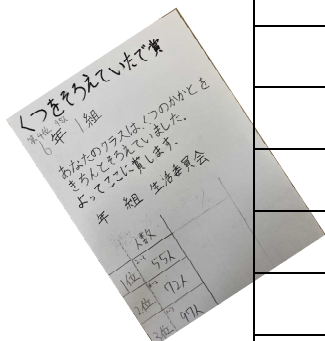 くつをそろえていたで賞
第1位
6年 1組
あなたのクラスは、くつのかかとを
きちんとそろえていました。
よってここに賞します。
年 組 生活委員会
人数
1位 55人
2位 72人
3位 97人